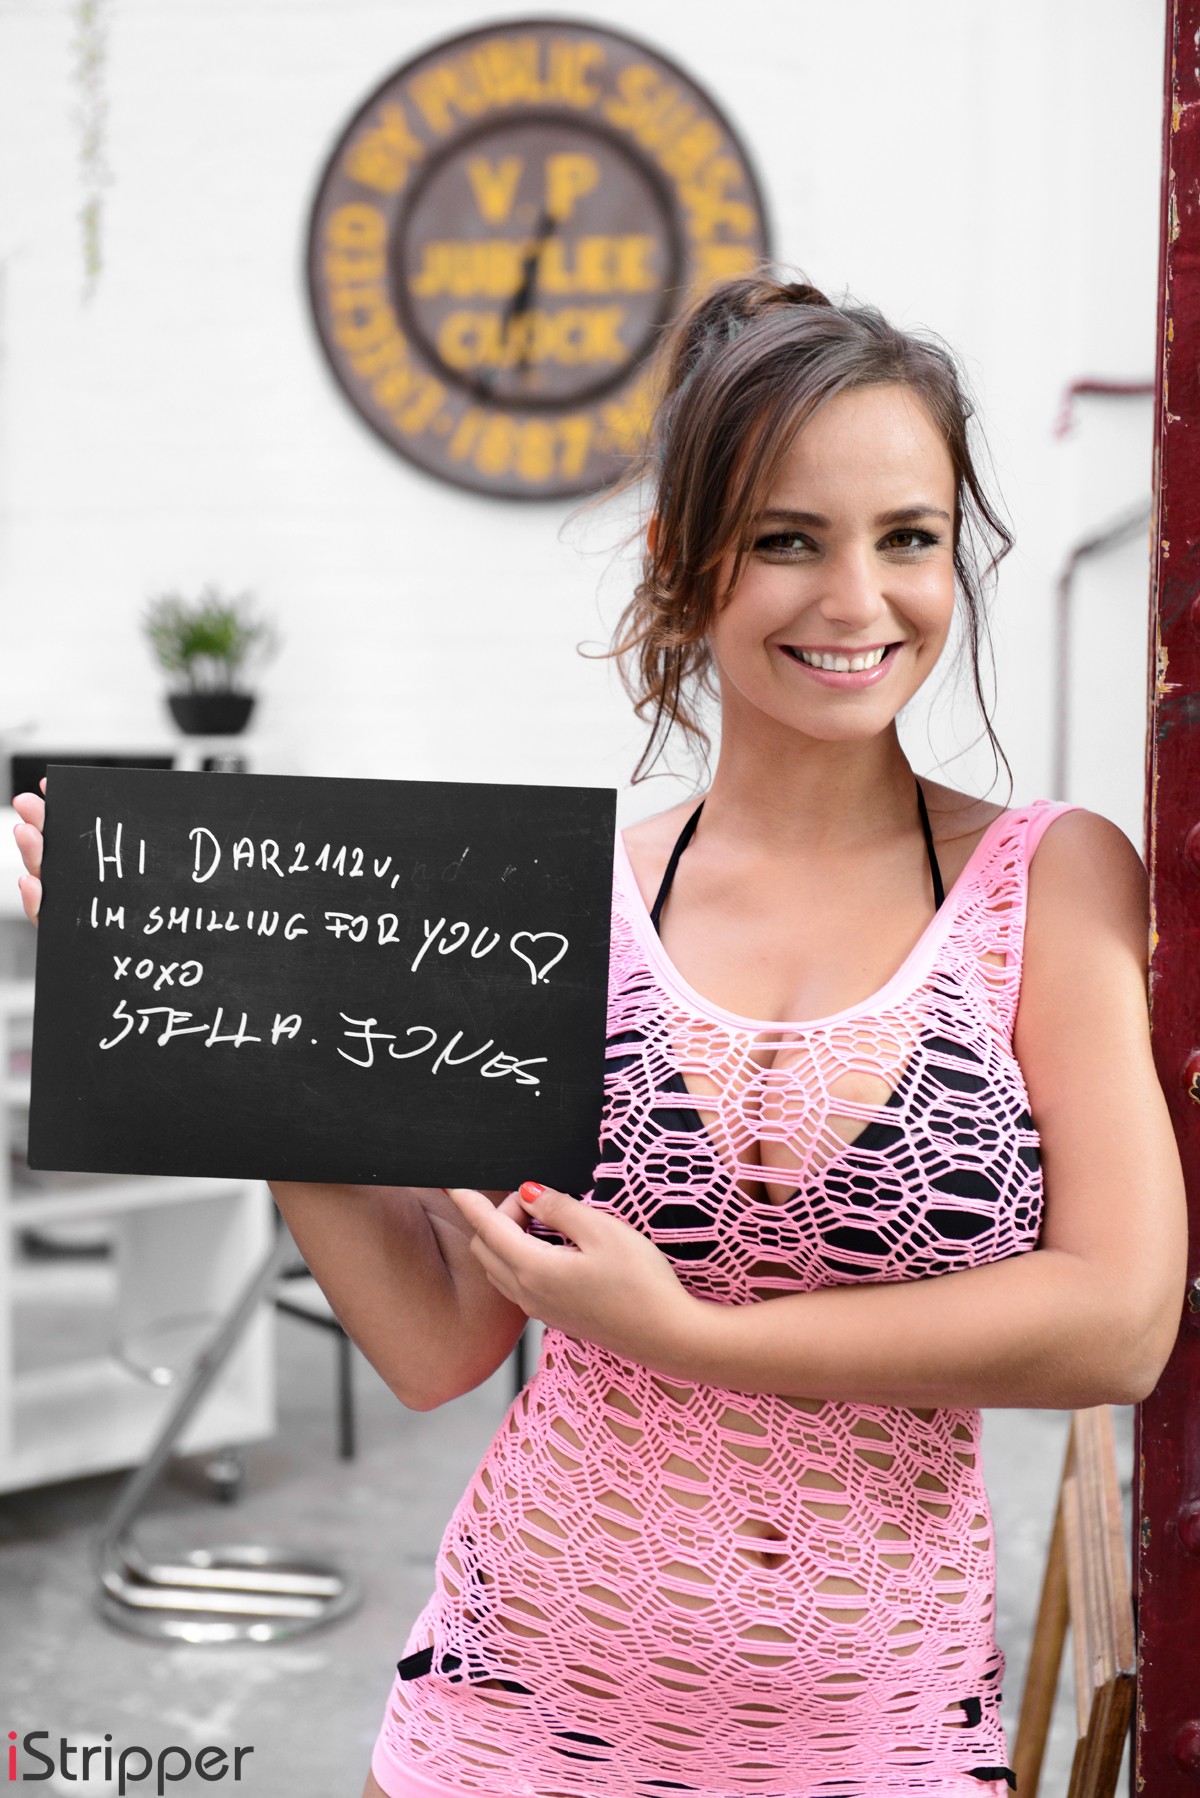 ERECTED BY PUBLIC SUBSC
V.P
JUBILEE
CLOCK
1887
HI DAR2112V,
IM SMILLING FOR YOU♡.
XOXO
STELLA. JONES.
iStripper